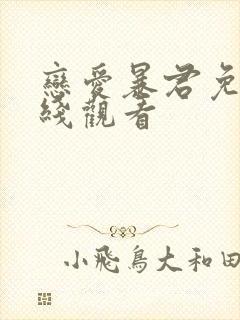 戀愛暴君免
綫觀看
小飛鳥大和田